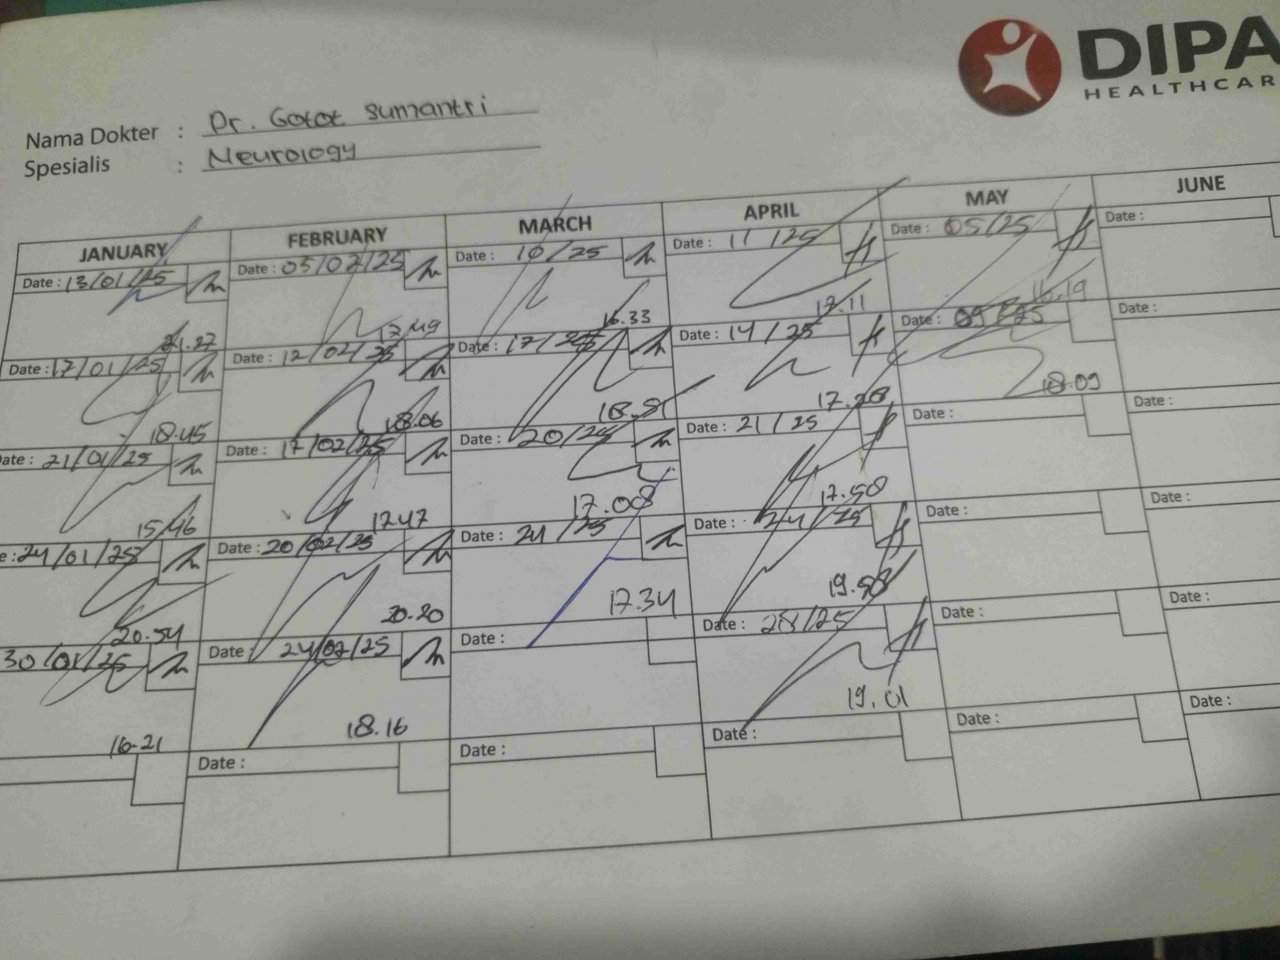 DIPA
HEALTHCAR
Nama Dokter : Dr. Gotot Sumantri
Spesialis : Neurology
JANUARY FEBRUARY MARCH APRIL MAY JUNE
Date : 13/01/25 Date : 03/02/25 Date : 10/25 Date : 11/25 Date : 05/25 Date :
21.27 17.49 16.33 17.11 16.19
Date : 17/01/25 Date : 12/02/25 Date : 17/25 Date : 14/25 Date : 09 Date :
18.45 18.06 18.51 17.28 18.09
ate : 21/01/25 Date : 17/02/25 Date : 20/25 Date : 21/25 Date : Date :
15.46 17.47 17.08 17.58
e : 24/01/25 Date : 20/02/25 Date : 24/25 Date : 24/25 Date : Date :
20.54 20.20 17.34 19.58
30/01/25 Date : 24/02/25 Date : Date : 28/25 Date : Date :
16-21 18.16 19.01
Date : Date : Date : Date : Date :